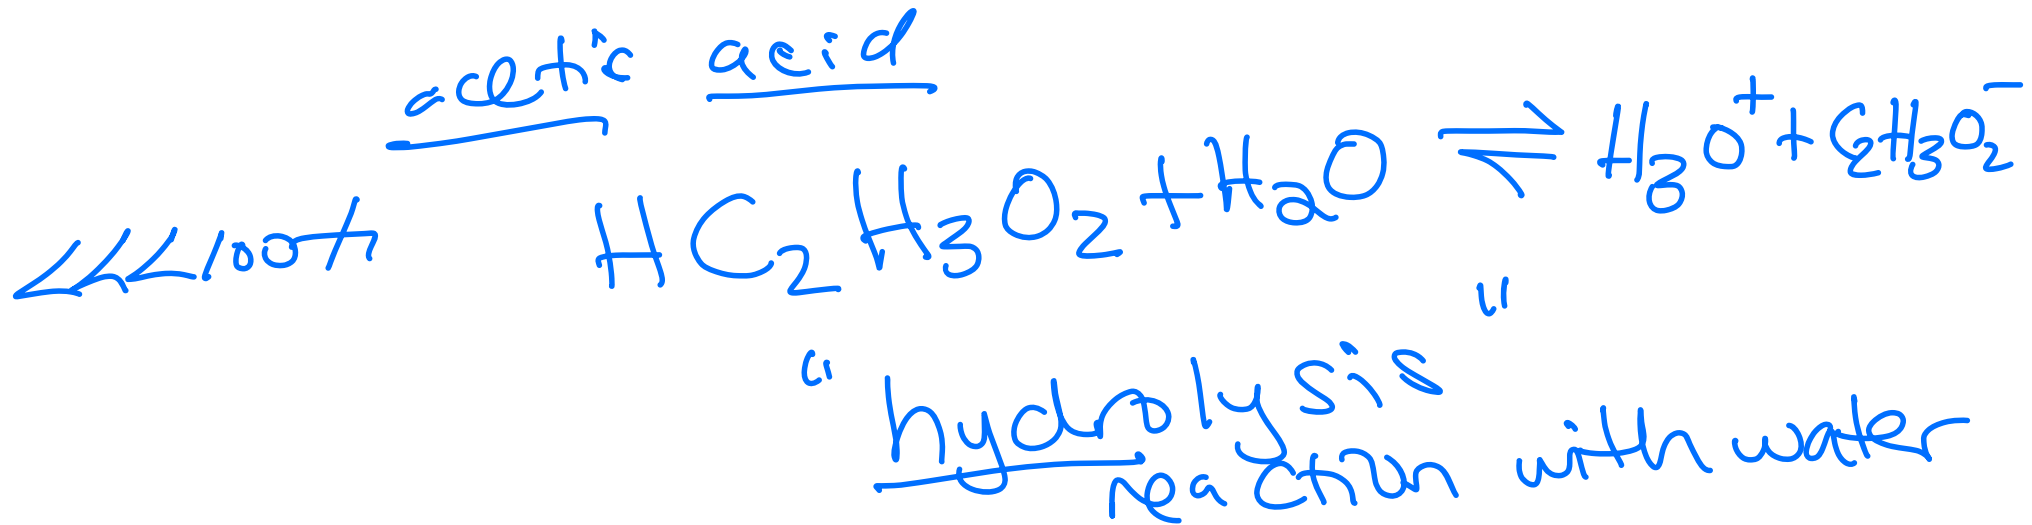 acetic acid
<<<100% HC₂H₃O₂ + H₂O ⇌ H₃O⁺ + C₂H₃O₂⁻
"hydrolysis"
reaction with water